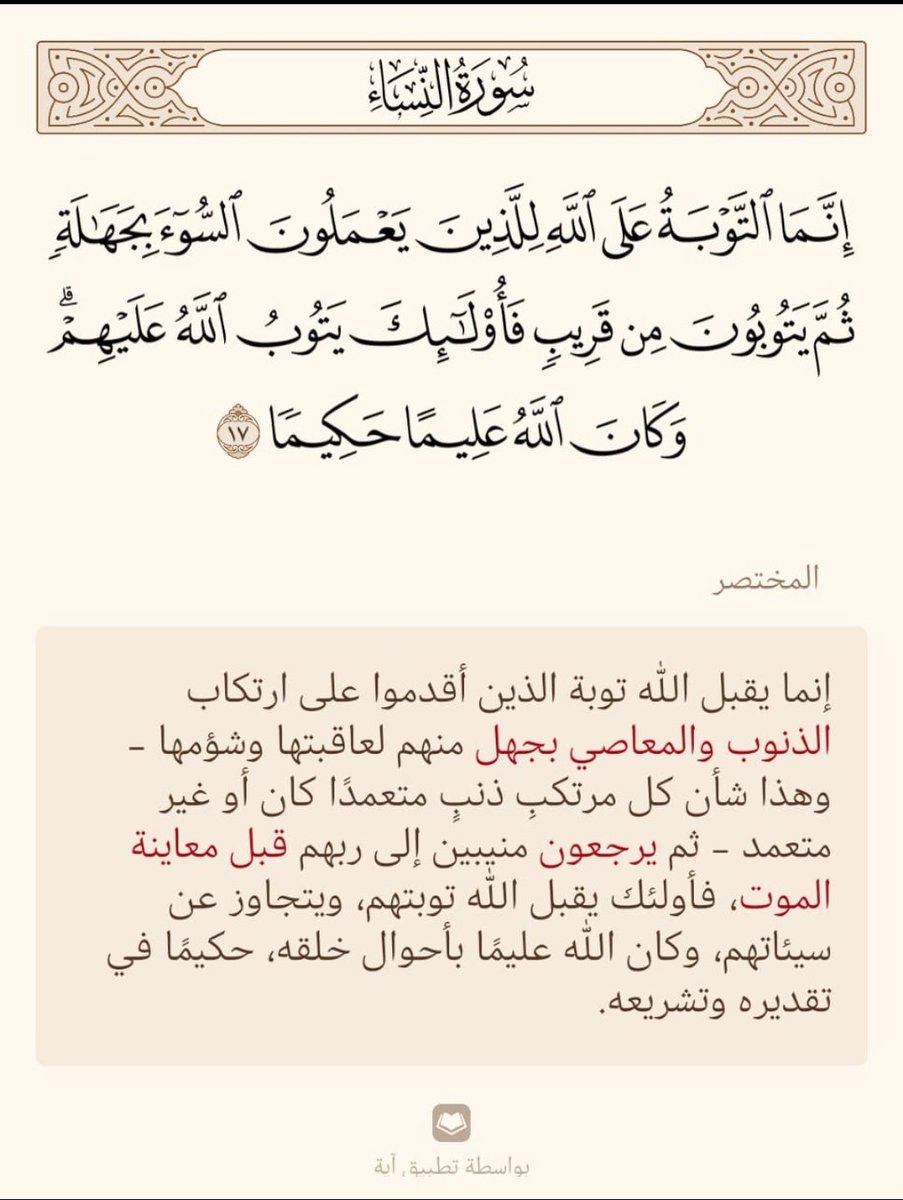 سُورَةُ النِّسَاءِ
إِنَّمَا ٱلتَّوْبَةُ عَلَى ٱللَّهِ لِلَّذِينَ يَعْمَلُونَ ٱلسُّوٓءَ بِجَهَـٰلَةٖ
ثُمَّ يَتُوبُونَ مِن قَرِيبٖ فَأُوْلَـٰٓئِكَ يَتُوبُ ٱللَّهُ عَلَيْهِمْۗ
وَكَانَ ٱللَّهُ عَلِيمًا حَكِيمٗا ١٧
المختصر
إنما يقبل الله توبة الذين أقدموا على ارتكاب
الذنوب والمعاصي بجهل منهم لعاقبتها وشؤمها -
وهذا شأن كل مرتكبِ ذنبٍ متعمدًا كان أو غير
متعمد - ثم يرجعون منيبين إلى ربهم قبل معاينة
الموت، فأولئك يقبل الله توبتهم، ويتجاوز عن
سيئاتهم، وكان الله عليمًا بأحوال خلقه، حكيمًا في
تقديره وتشريعه.
بواسطة تطبيق آية